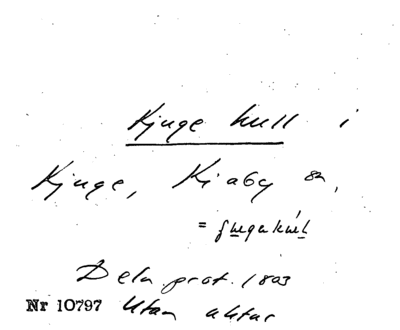 Kjuge kull i
Kjuge, Kiaby sn,
=
Dela prot. 1803
Nr 10797 Utan aktar